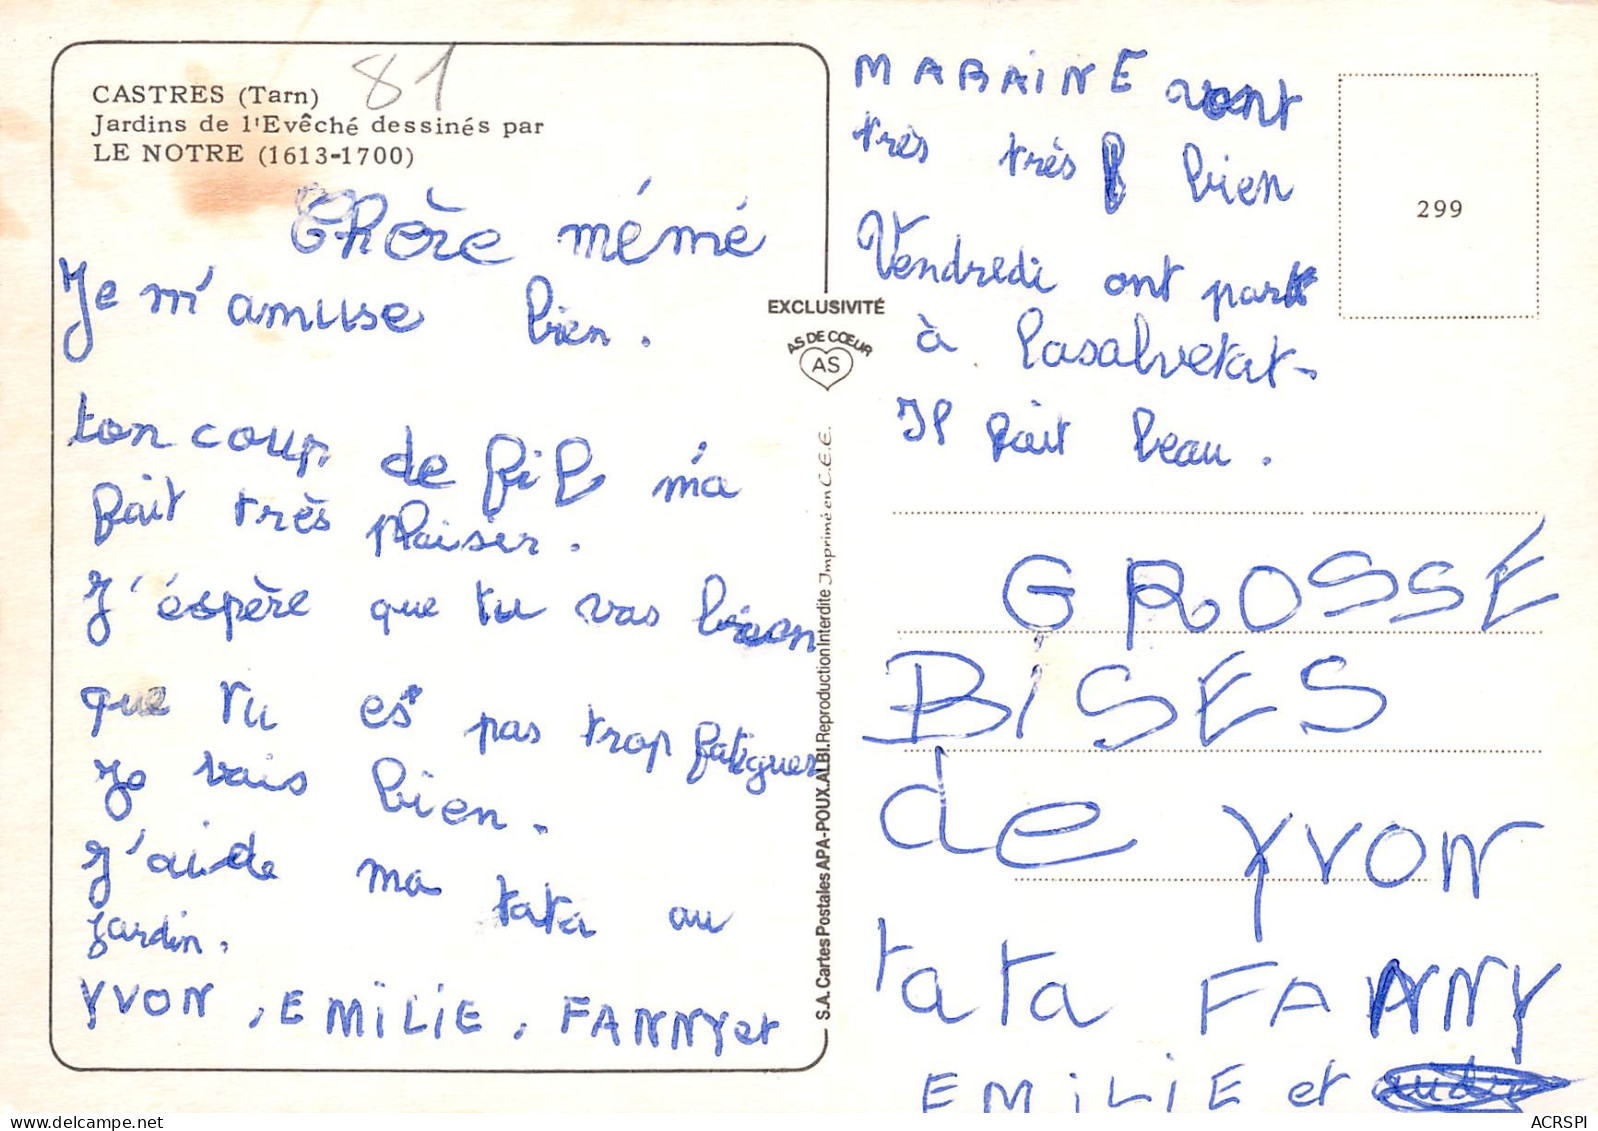 CASTRES (Tarn)
Jardins de l'Evêché dessinés par
LE NOTRE (1613-1700)
81
Chère mémé
Je m'amuse bien.
ton coup de fil m'a
fait très plaisir.
J'éspère que tu vas bien
que tu es pas trop fatiguer
Je vais bien.
J'aide ma tata au
jardin.
YVON, EMiLiE, FANNY et
EXCLUSIVITÉ
AS DE CŒUR
AS
S.A. Cartes Postales APA-POUX.ALBI. Reproduction Interdite Imprimé en C.E.E.
MARAiNE vont
très très bien
Vendredi ont part
à lasalvetat-
Il fait beau.
299
GROSSE
BiSES
de YVON
tata FANNY
EMiLiE et
ACRSPI